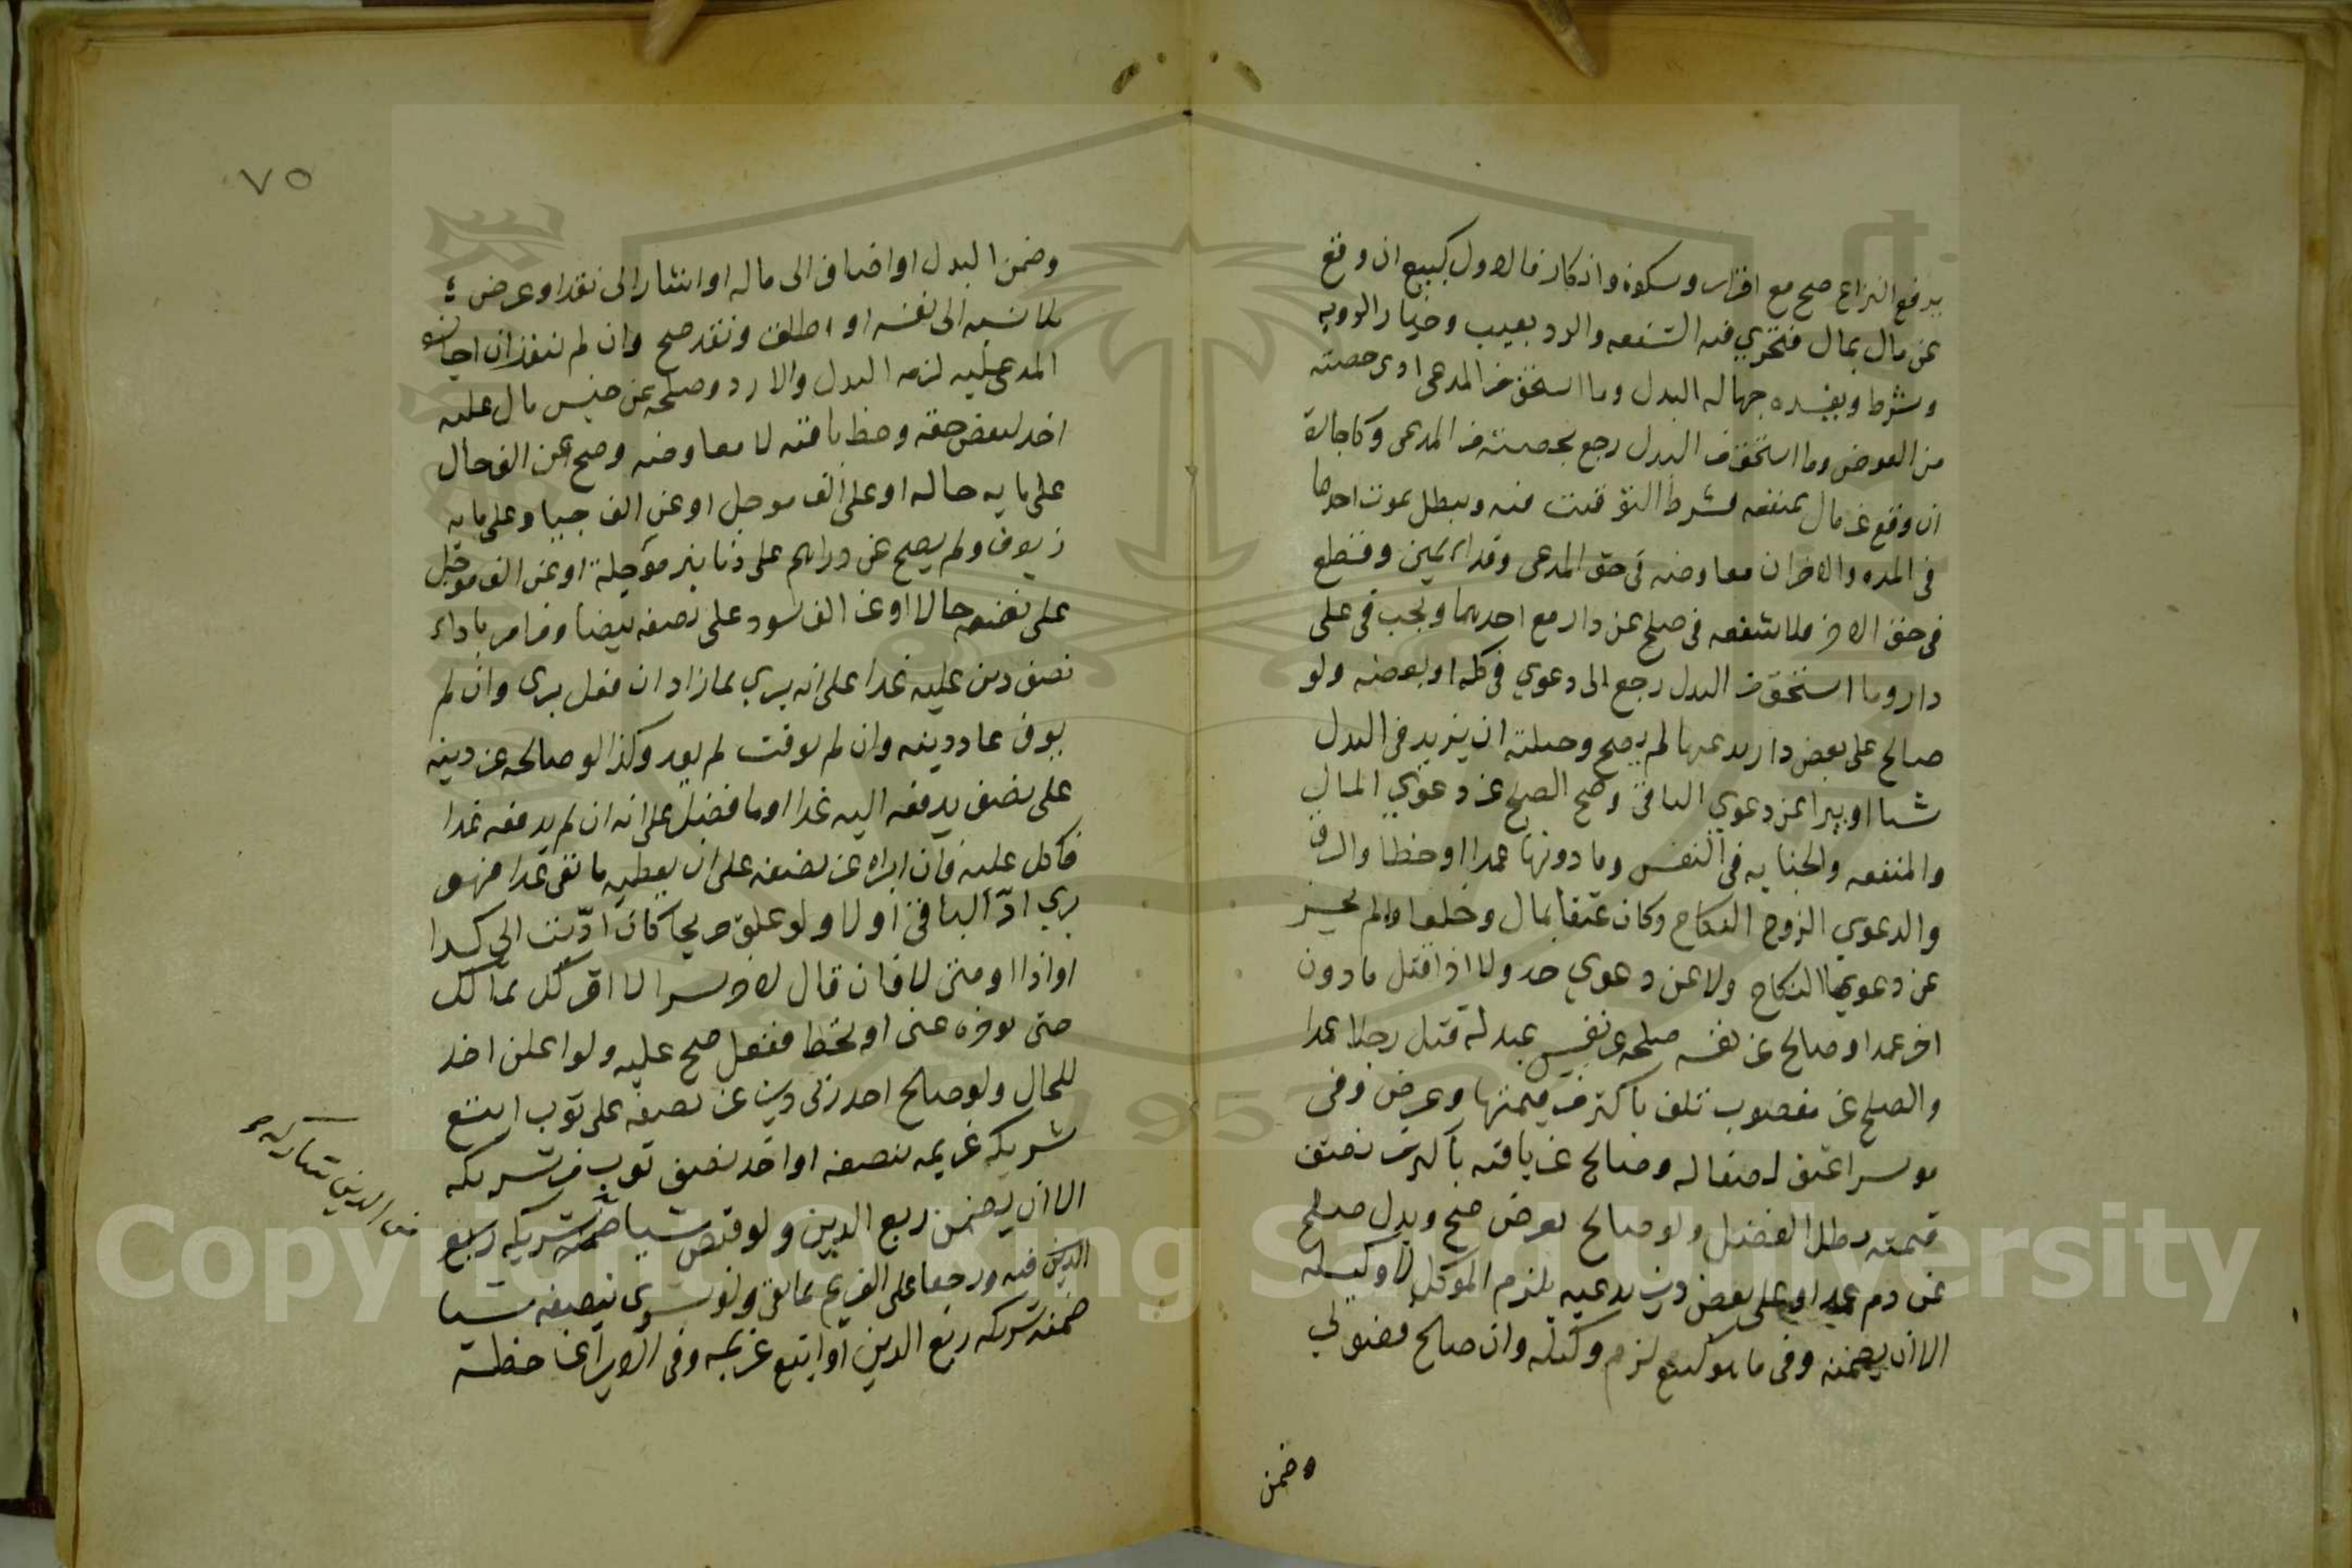 يرفع النزاع صح مع اقرار وسكوة وانكار فالاول كبيع ان وقع
عن مال بمال فتجري فيه الشفعه والرد بعيب وخيار الرويه
وشرط ويفسده جهاله البدل وما استحق من المدعى ادى حصته
من العوض وما استحق من البدل رجع بحصته من المدعى وكاجارة
ان وقع عن مال بمنفعه فشرط التوقيت فيه ويبطل بموت احدهما
في المده والاخران معاوضه في حق المدعى وفداء يمين وقطع
في حق الاخر فلا شفعه في صلح عن دار مع احدهما ويجب في على
دار وما استحق من البدل رجع الى دعوي في كله او بعضه ولو
صالح على بعض دار يدعيها لم يصح وحيلته ان يزيد في البدل
شيا او يبرا عن دعوي الباقي وصح الصلح عن دعوي المال
والمنفعه والجنايه في النفس وما دونها عمدا او خطا والرق
والدعوي الزوج النكاح وكان عتقا بمال وخلعا ولم يجز
عن دعويها النكاح ولا عن دعوي حد ولا اذا قتل ماذون
اخر عمدا وصالح عن نفسه صلحه عن نفس عبد له قتل رجلا عمدا
والصلح عن مغصوب تلف باكثر من قيمتها وعرض وفي
موسر اعتق نصفا له وصالح عن باقيه باكثر من نصف
قيمته بطل الفضل ولو صالح بعرض صح وبدل صلح
عن دم عمد او على بعض دين يدعيه يلزم الموكل لا وكيله
الا ان يضمنه وفي ما هو كبيع لزم وكيله وان صالح فضولي
وضمن
٧٥
وضمن البدل او اضاف الى ماله او اشار الى نقد او عرض
بلا نسبه الى نفسه او اطلق ونقد صح وان لم ينقد ان اجازه
المدعى عليه لزمه البدل والا رد وصلحه عن جنس مال عليه
اخذ لبعض حقه وحط باقيه لا معاوضه وصح عن الف حال
على مايه حاله او على الف موجل او عن الف جياد على مايه
زيوف ولم يصح عن دراهم على دنانير مؤجلة او عن الف موجل
على نصفه حالا او عن الف سود على نصفه بيضا ومن امر باداء
نصف دين عليه غدا على انه بري مما زاد ان فعل بري وان لم
يوف عاد دينه وان لم يوقت لم يعد وكذا لو صالحه عن دينه
على نصف يدفعه اليه غدا وما فضل على انه ان لم يدفعه غدا
فالكل عليه فان ابراه عن نصفه على ان يعطيه ما بقي غدا فهو
بري ادّ الباقي اولا ولو علق صريحا كان ادّيت الى كذا
او اذا او متى لا فان قال لاخر سرا لا اقر لك بمالك
حتى توخره عني او تحط ففعل صح عليه ولو اعلن اخذ
للحال ولو صالح احد ربي دين عن نصفه على ثوب اتبع
شريكه غريمه بنصفه او اخذ نصف ثوب من شريكه
الا ان يضمن ربع الدين ولو قبض شيا شريكه ربع
الدين فيه ورجعا على الغريم بما بقي ولو شرى بنصفه شيا
ضمنه شريكه ربع الدين او اتبع غريمه وفي الابرا عن حظه
من الدين شاركه